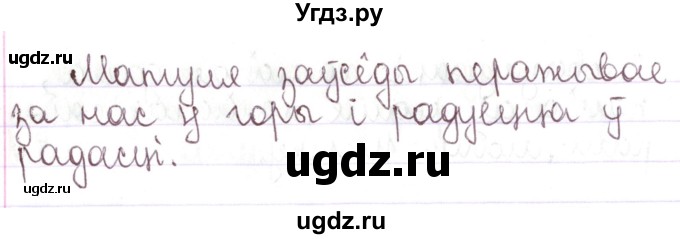 Угдз.ру
ugdz.ru
ugdz.ru
Матуля заўсёды перажывае
за нас у горы і радуецца ў
ugdz.ru
радасці.
ugdz.ru
ugdz.ru
ugdz.ru
ugdz.ru